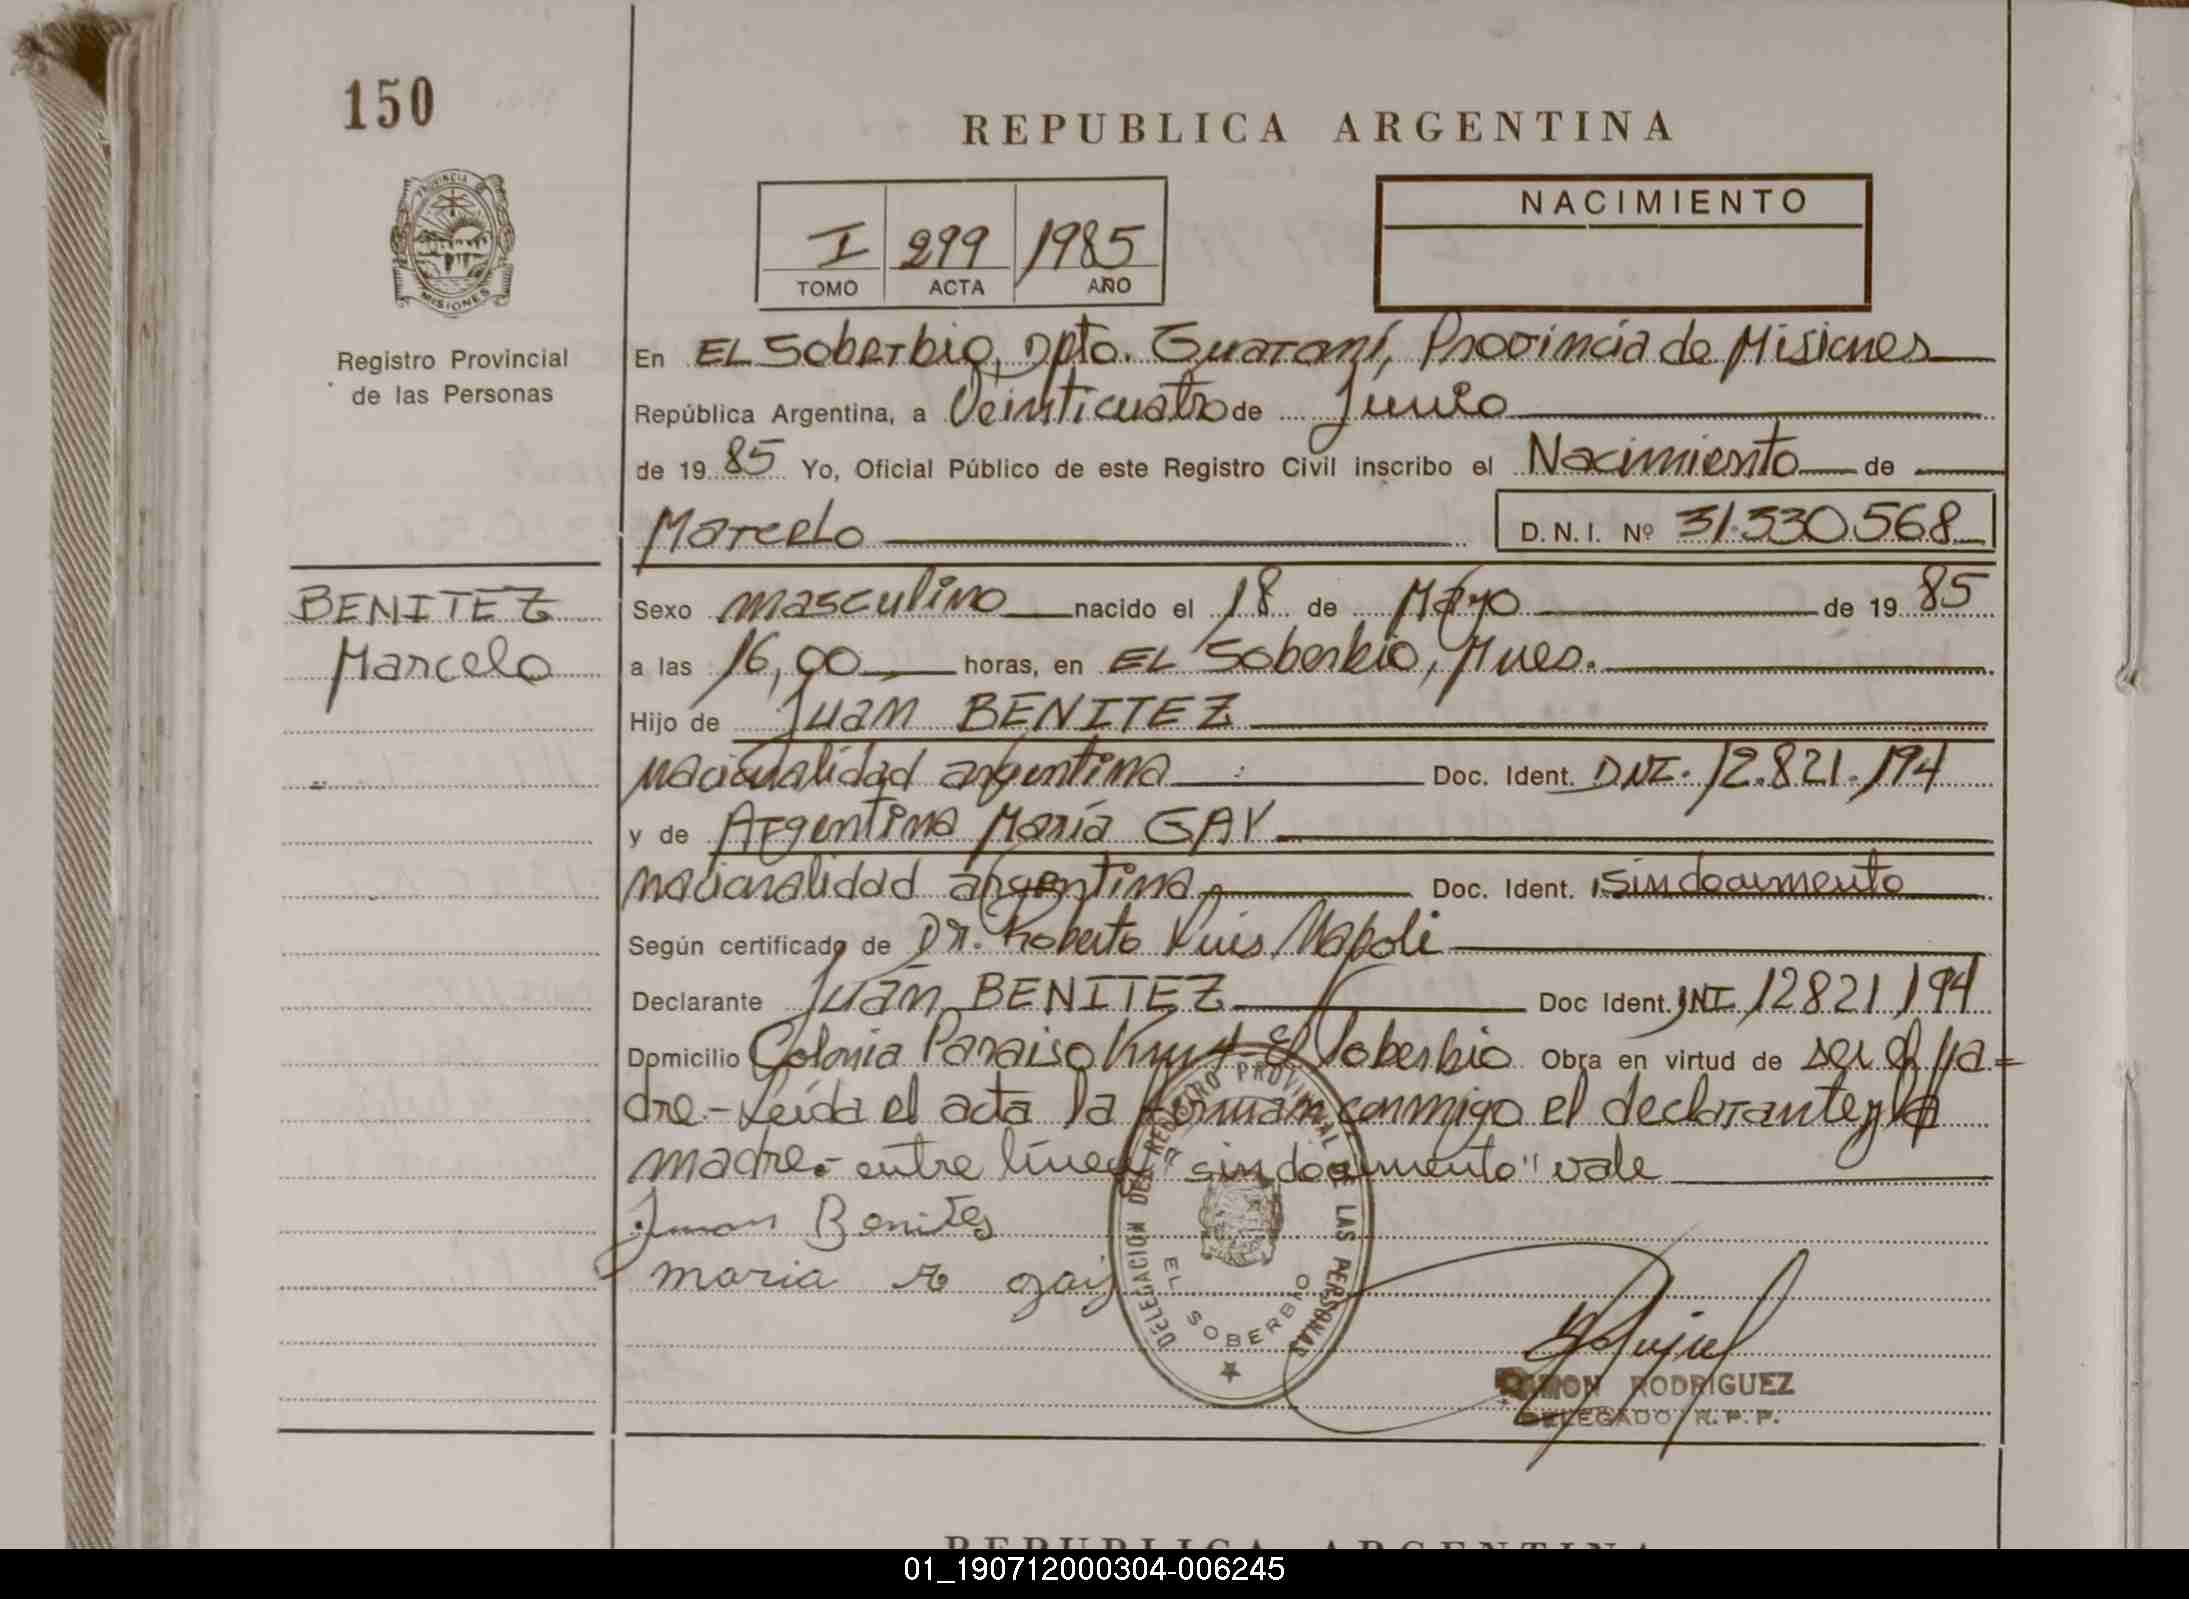 150
REPUBLICA ARGENTINA
PROVINCIA
MISIONES
NACIMIENTO
I 299 1985
TOMO ACTA AÑO
Registro Provincial
de las Personas
En EL Soberbio, Dpto. Guaraní, Provincia de Misiones
República Argentina, a Veinticuatro de Junio
de 1985 Yo, Oficial Público de este Registro Civil inscribo el Nacimiento de
Marcelo D. N. I. Nº 31.330.568
BENITEZ
Marcelo
Sexo masculino nacido el 18 de Mayo de 1985
a las 16,00 horas, en EL Soberbio, Mnes.
Hijo de Juan BENITEZ
nacionalidad argentina Doc. Ident. DNI. 12.821.194
y de Argentina María GAY
nacionalidad argentina Doc. Ident. sin documento
Según certificado de Dr. Roberto Luis Napoli
Declarante Juan BENITEZ Doc Ident. DNI 12821194
Domicilio Colonia Paraiso El Soberbio Obra en virtud de ser el pa=
dre.- Leída el acta la firman conmigo el declarante y la
madre.- entre línea "sin documento" vale
Juan Benites
maria A gay
DELEGACIÓN DEL REGISTRO PROVINCIAL DE LAS PERSONAS
EL SOBERBIO
RAMON RODRIGUEZ
DELEGADO R. P. P.
REPUBLICA ARGENTINA
01_190712000304-006245